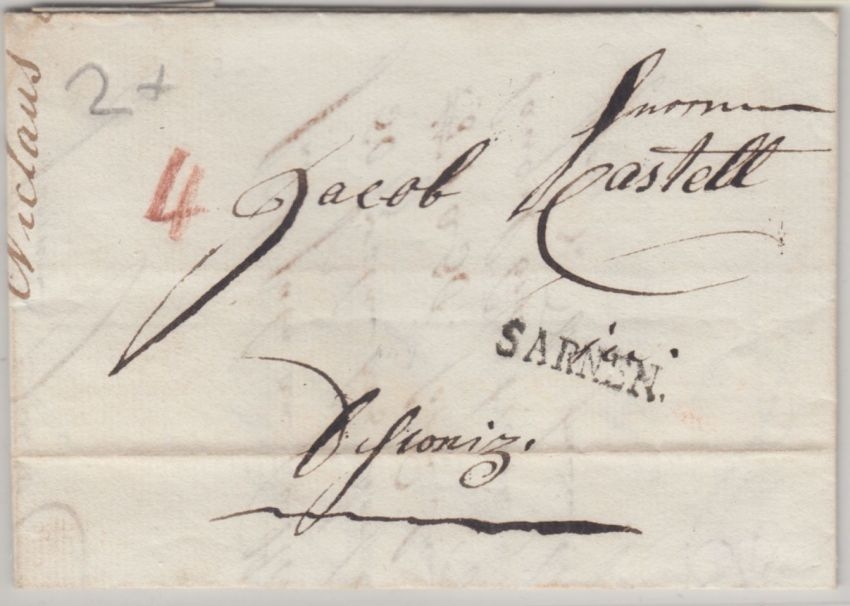 Niclaus
2+
4
Jacob Castell
SARNEN.